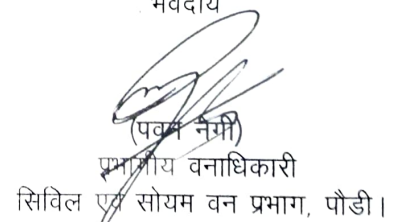 भवदीय
(पवन नेगी)
प्रभागीय वनाधिकारी
सिविल एवं सोयम वन प्रभाग, पौडी।